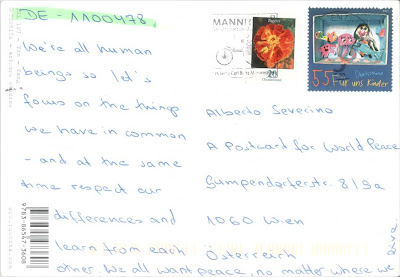 DE - 1100478
We're all human
beings so let's
focus on the things
we have in common
- and at the same
time respect our
differences and
learn from each
other. We all want peace, no matter where we
live.
MANN
20
Deutschland
55
Für uns Kinder
Alberto Severino
A Postcard for World Peace
Gumpendorferstr. 8/9a
1060 Wien
Österreich